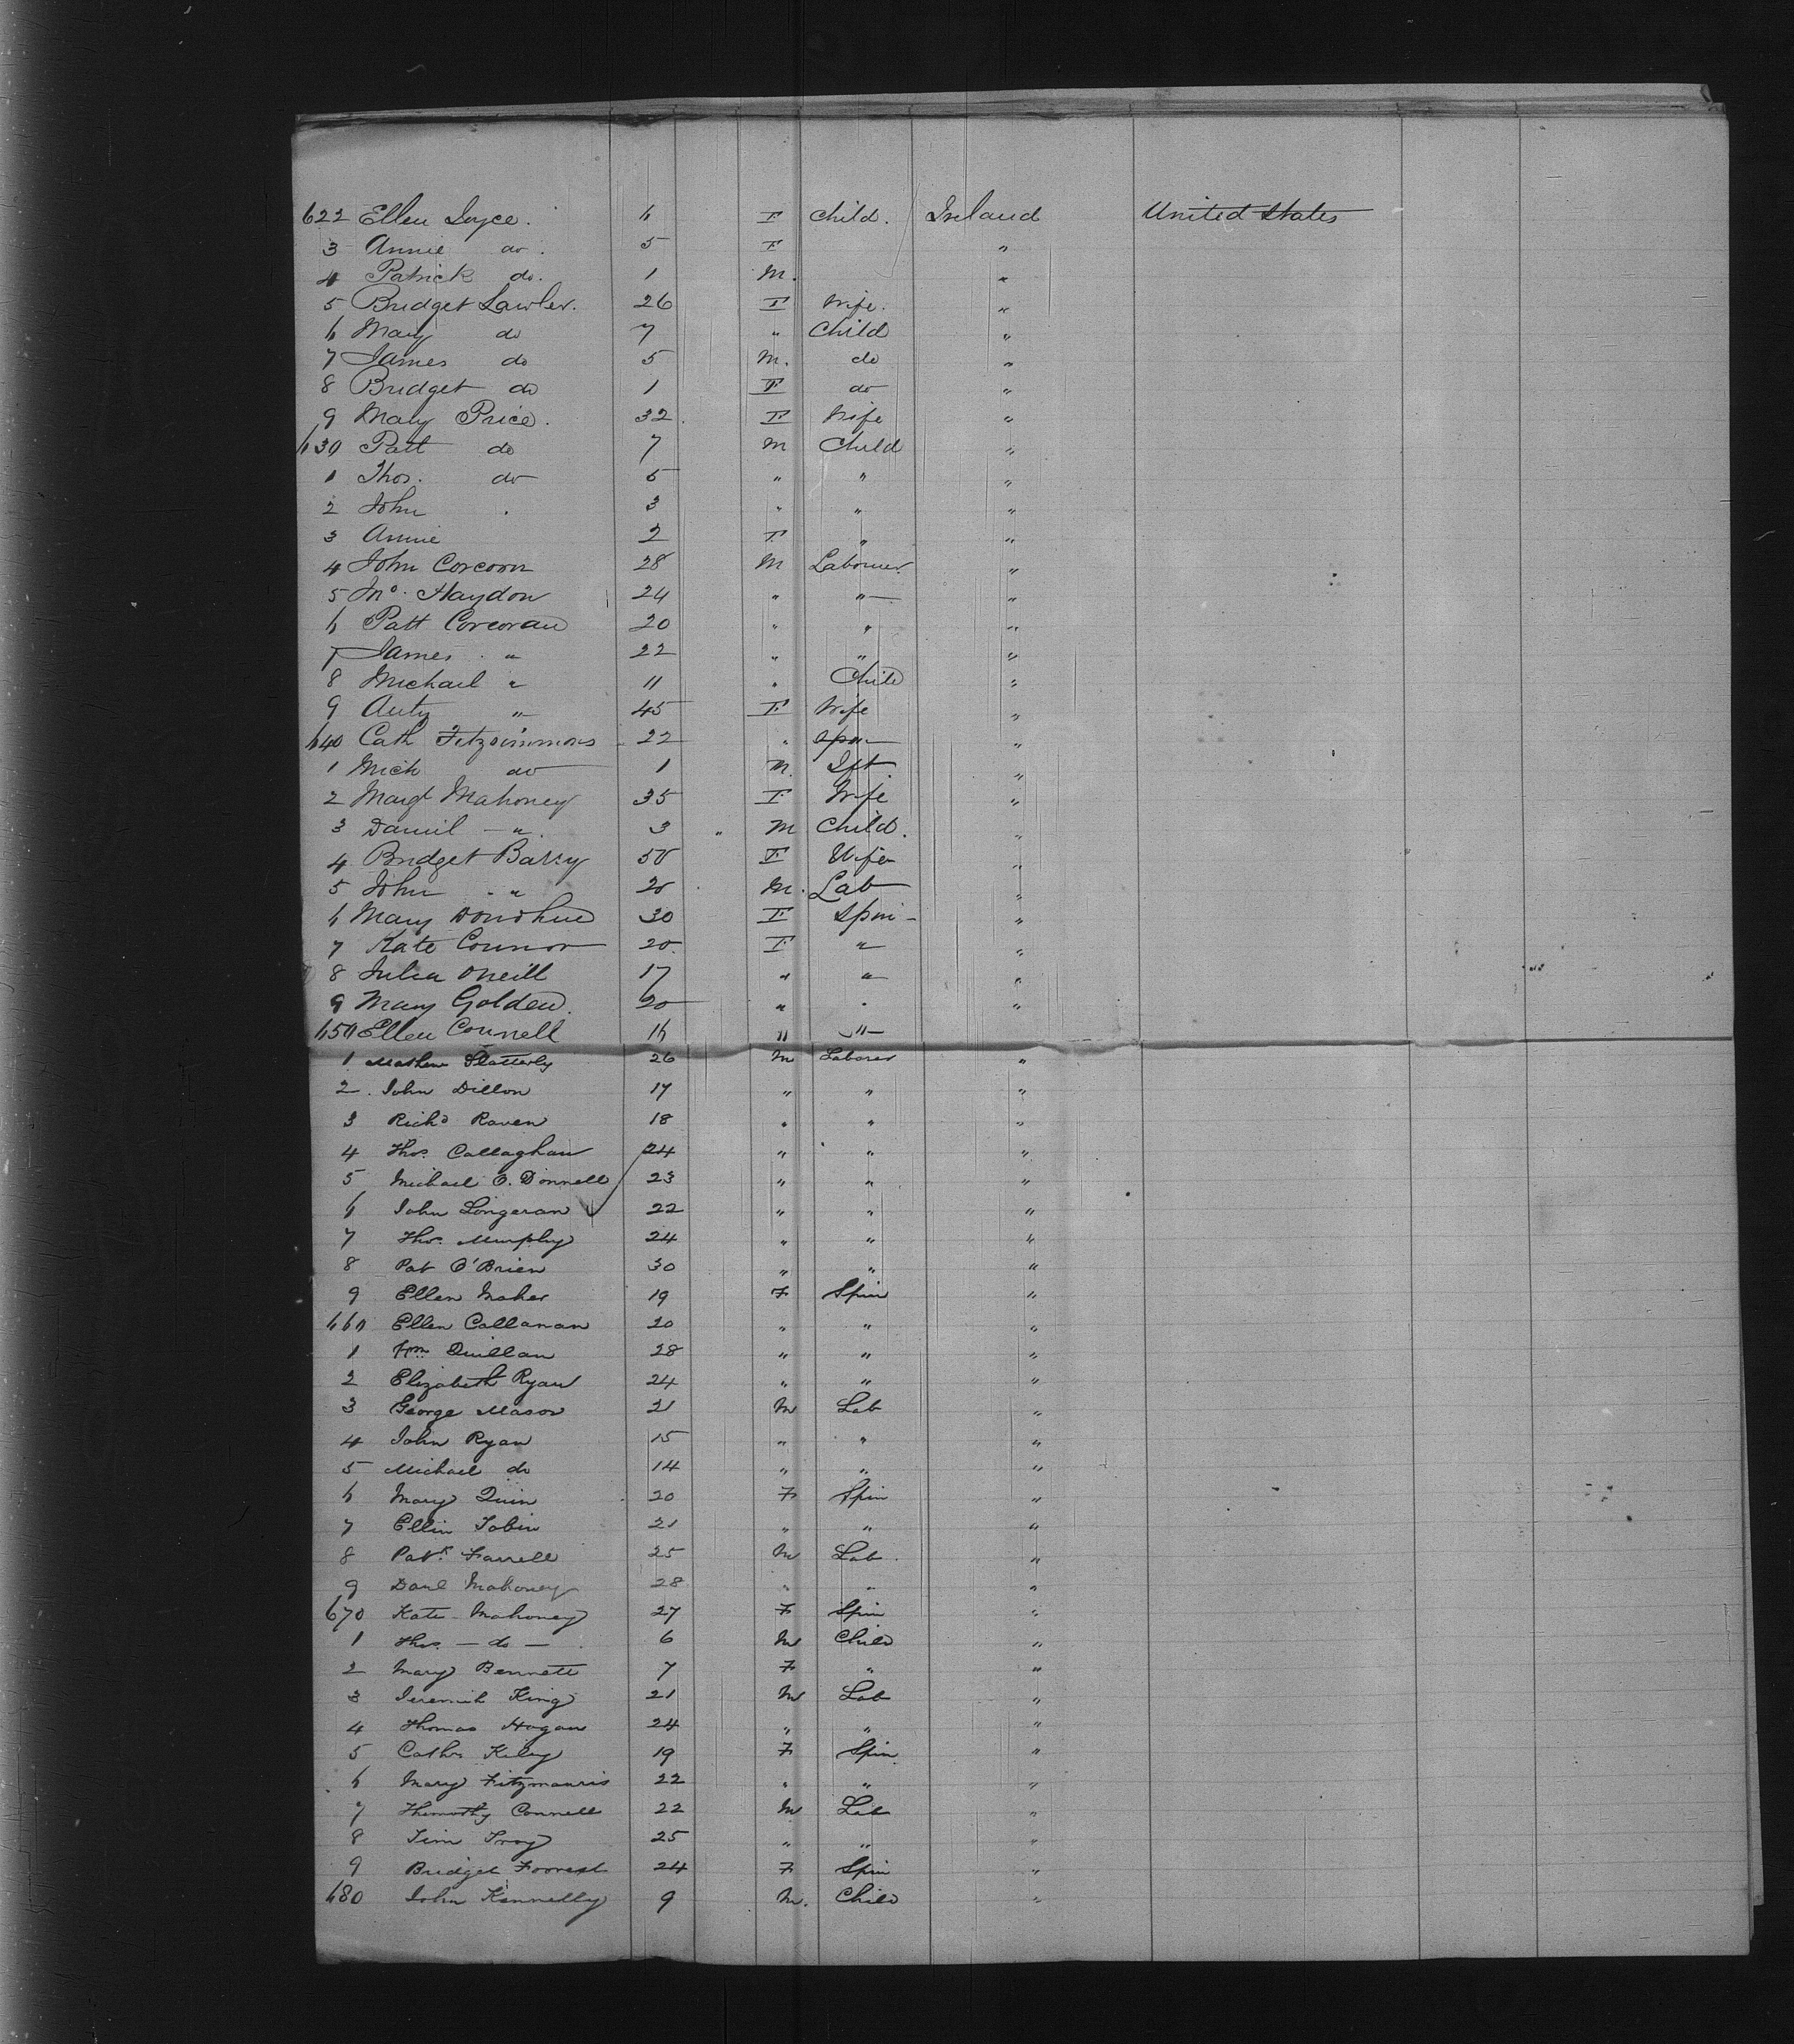 622 Ellen Joyce. 6 F Child. Ireland United States
3 Annie do. 5 F "
4 Patrick do. 1 M. "
5 Bridget Lawler. 26 F Wife. "
6 Mary do 7 " Child "
7 James do 5 M. do "
8 Bridget do 1 F do "
9 Mary Price. 32 F Wife "
630 Patt do 7 M Child "
1 Thos. do 5 " " "
2 John . 3 " " "
3 Annie 2 F " "
4 John Corcorn 28 M Labourer "
5 Jno. Haydon 24 " " "
6 Patt Corcoran 20 " " "
7 James " 22 " " "
8 Michael " 11 " Child "
9 " 45 F Wife "
640 Cath Fitzsimmons 22 " Spin "
1 Mich do 1 M. Ift "
2 Margt Mahoney 35 F Wife "
3 Daniel " 3 M Child. "
4 Bridget Barry 50 F Wife "
5 John " 20 M. Lab "
6 Mary Donohue 30 F Spin "
7 Kate Connor 20 F " "
8 Julia ONeill 17 " " "
9 Mary Golden. 20 " " "
650 Ellen Connell 16 " " "
1 Mathew Slatterly 26 M Laborer "
2 John Dillon 17 " " "
3 Richd Raven 18 " " "
4 Thos. Callaghan 24 " " "
5 Michael O. Donnell 23 " " "
6 John Longeran 22 " " "
7 Thos. Murphy 24 " " "
8 Pat O'Brien 30 " " "
9 Ellen Maher 19 F Spin "
660 Ellen Callanan 20 " " "
1 Quillan 28 " " "
2 Elizabeth Ryan 24 " " "
3 George Mason 21 M Lab "
4 John Ryan 15 " " "
5 Michael do 14 " " "
6 Mary Quin 20 F Spin "
7 Ellin Tobin 21 " " "
8 Patk. Farrell 25 M Lab "
9 Danl Mahoney 28 " " "
670 Kate Mahoney 27 F Spin "
1 Thos. — do — 6 M Child "
2 Mary Bennett 7 F " "
3 Jeremih King 21 M Lab "
4 Thomas Hogan 24 " " "
5 Cathr Kiley 19 F Spin "
6 Mary Fitzmauris 22 " " "
7 Thimothy Connell 22 M Lab "
8 Tim Troy 25 " " "
9 Bridget Forrest 24 F Spin "
680 John Kennelly 9 M. Child "